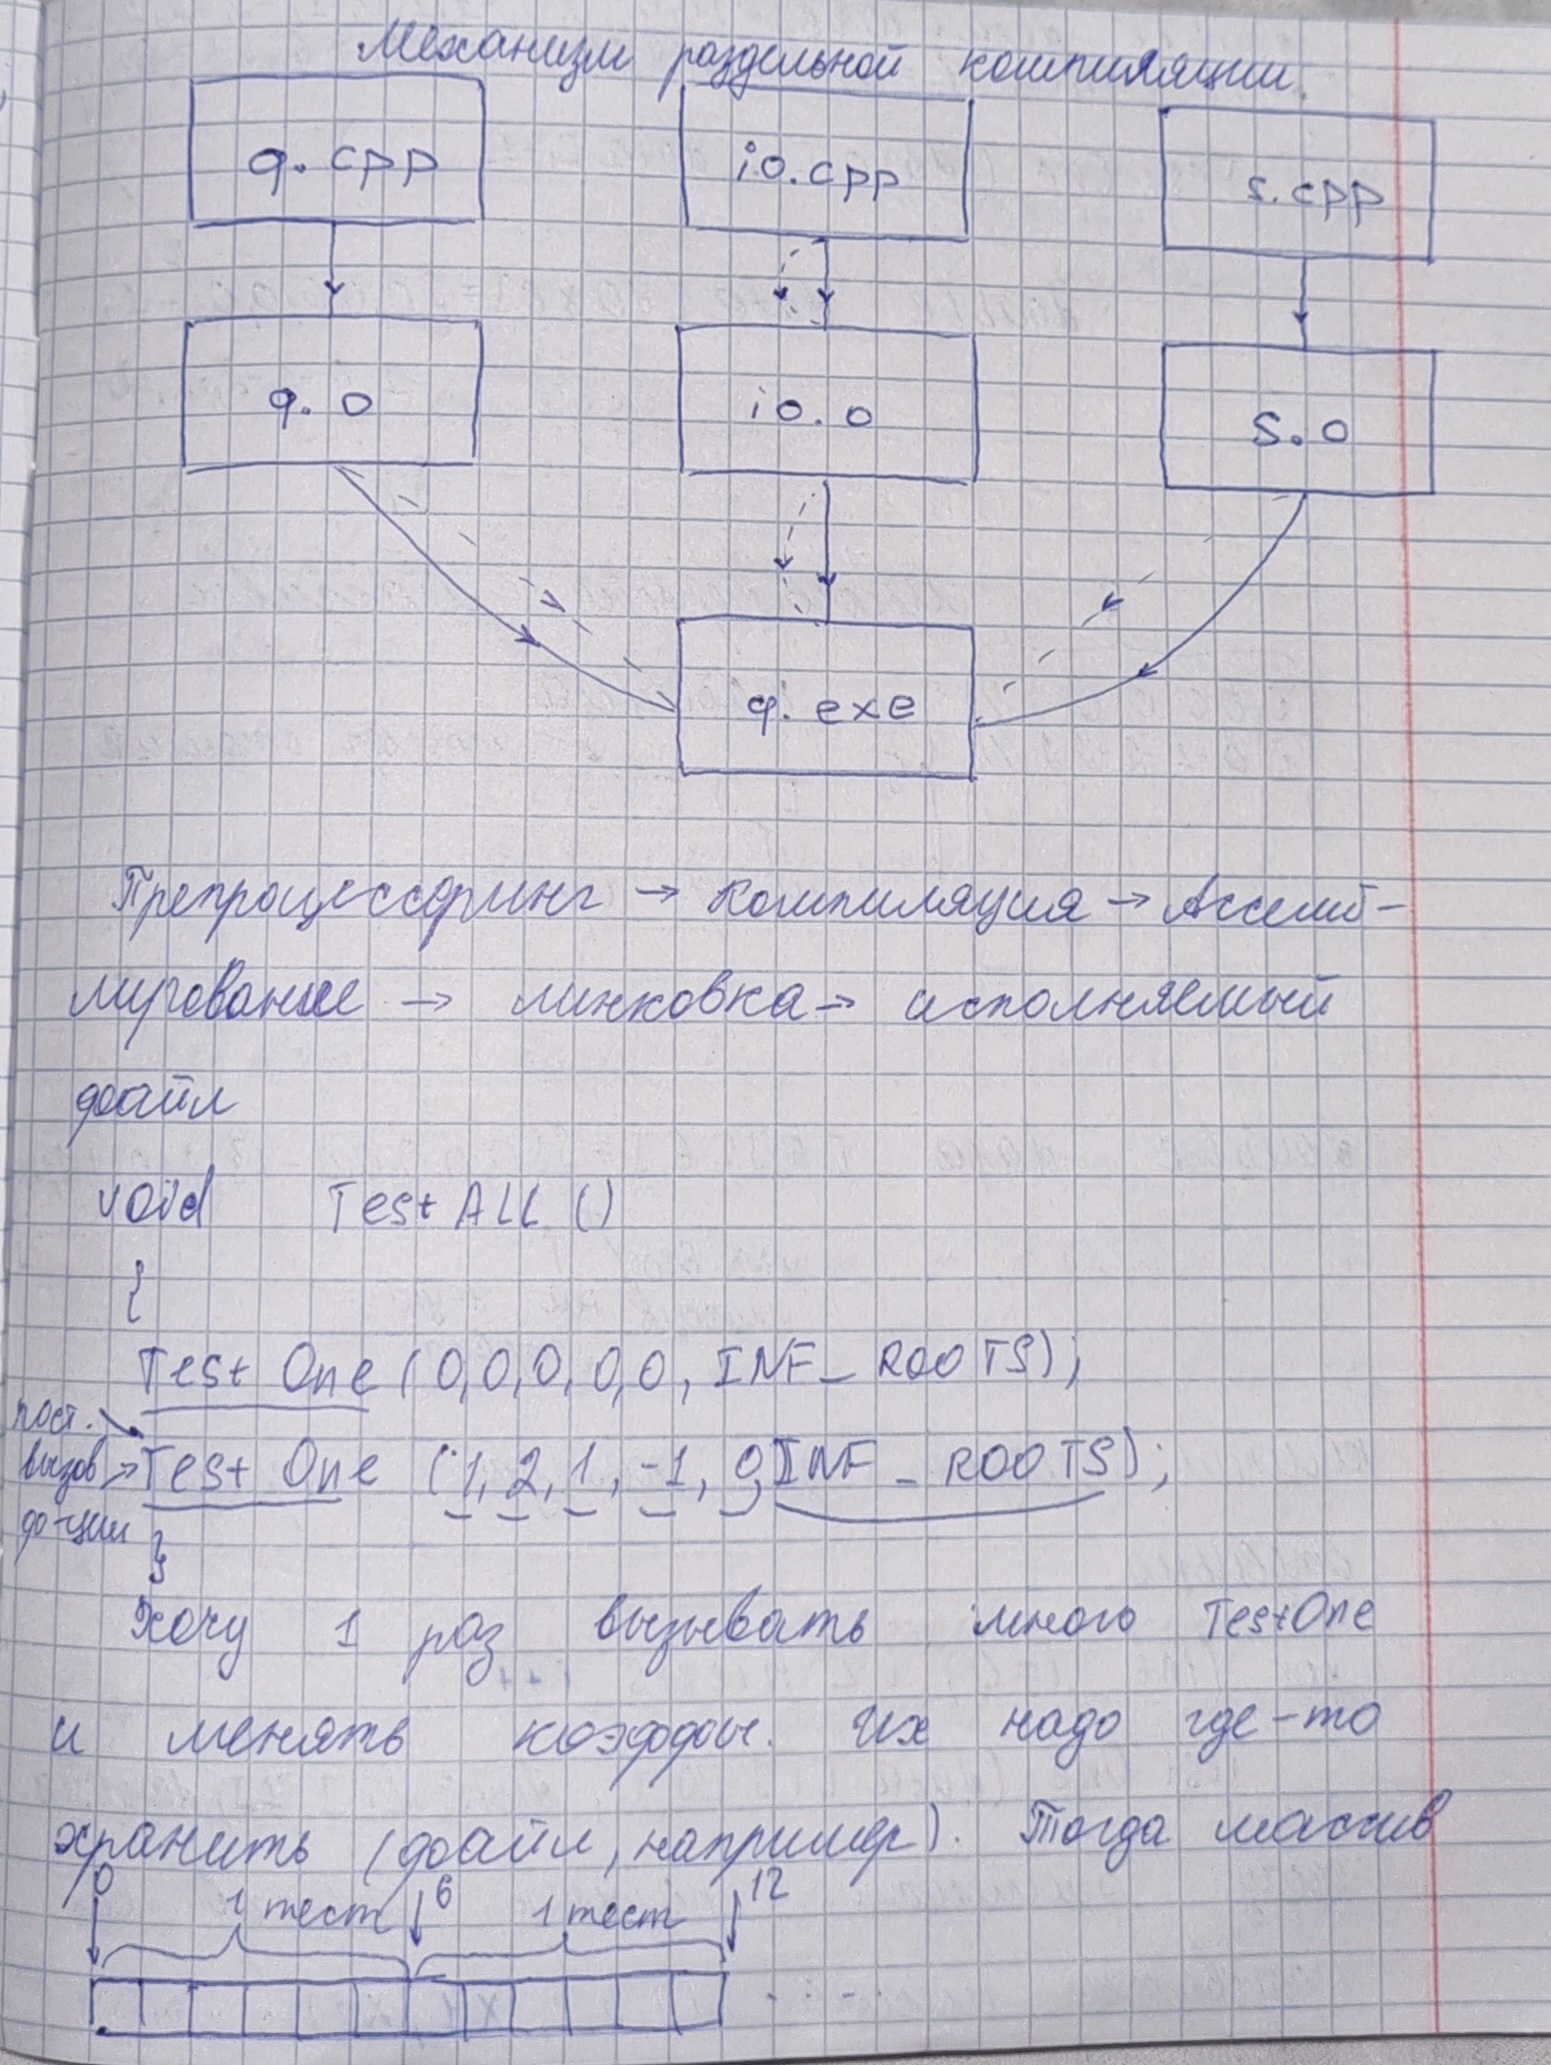 Механизм раздельной компиляции.
q.cpp io.cpp s.cpp
q.o io.o s.o
q.exe
Препроцессоринг → компиляция → Ассемб-
лирование → линковка → исполняемый
файл
void TestALL ()
{
Test One (0,0,0,0,0, INF_ROOTS);
пост.
вызов → Test One (1, 2, 1, -1, 0, INF_ROOTS);
ф-ции }
Хочу 1 раз вызывать много TestOne
и менять коэффы. Их надо где-то
хранить (файл, например). Тогда массив
0 1 тест 6 1 тест 12
. . . .